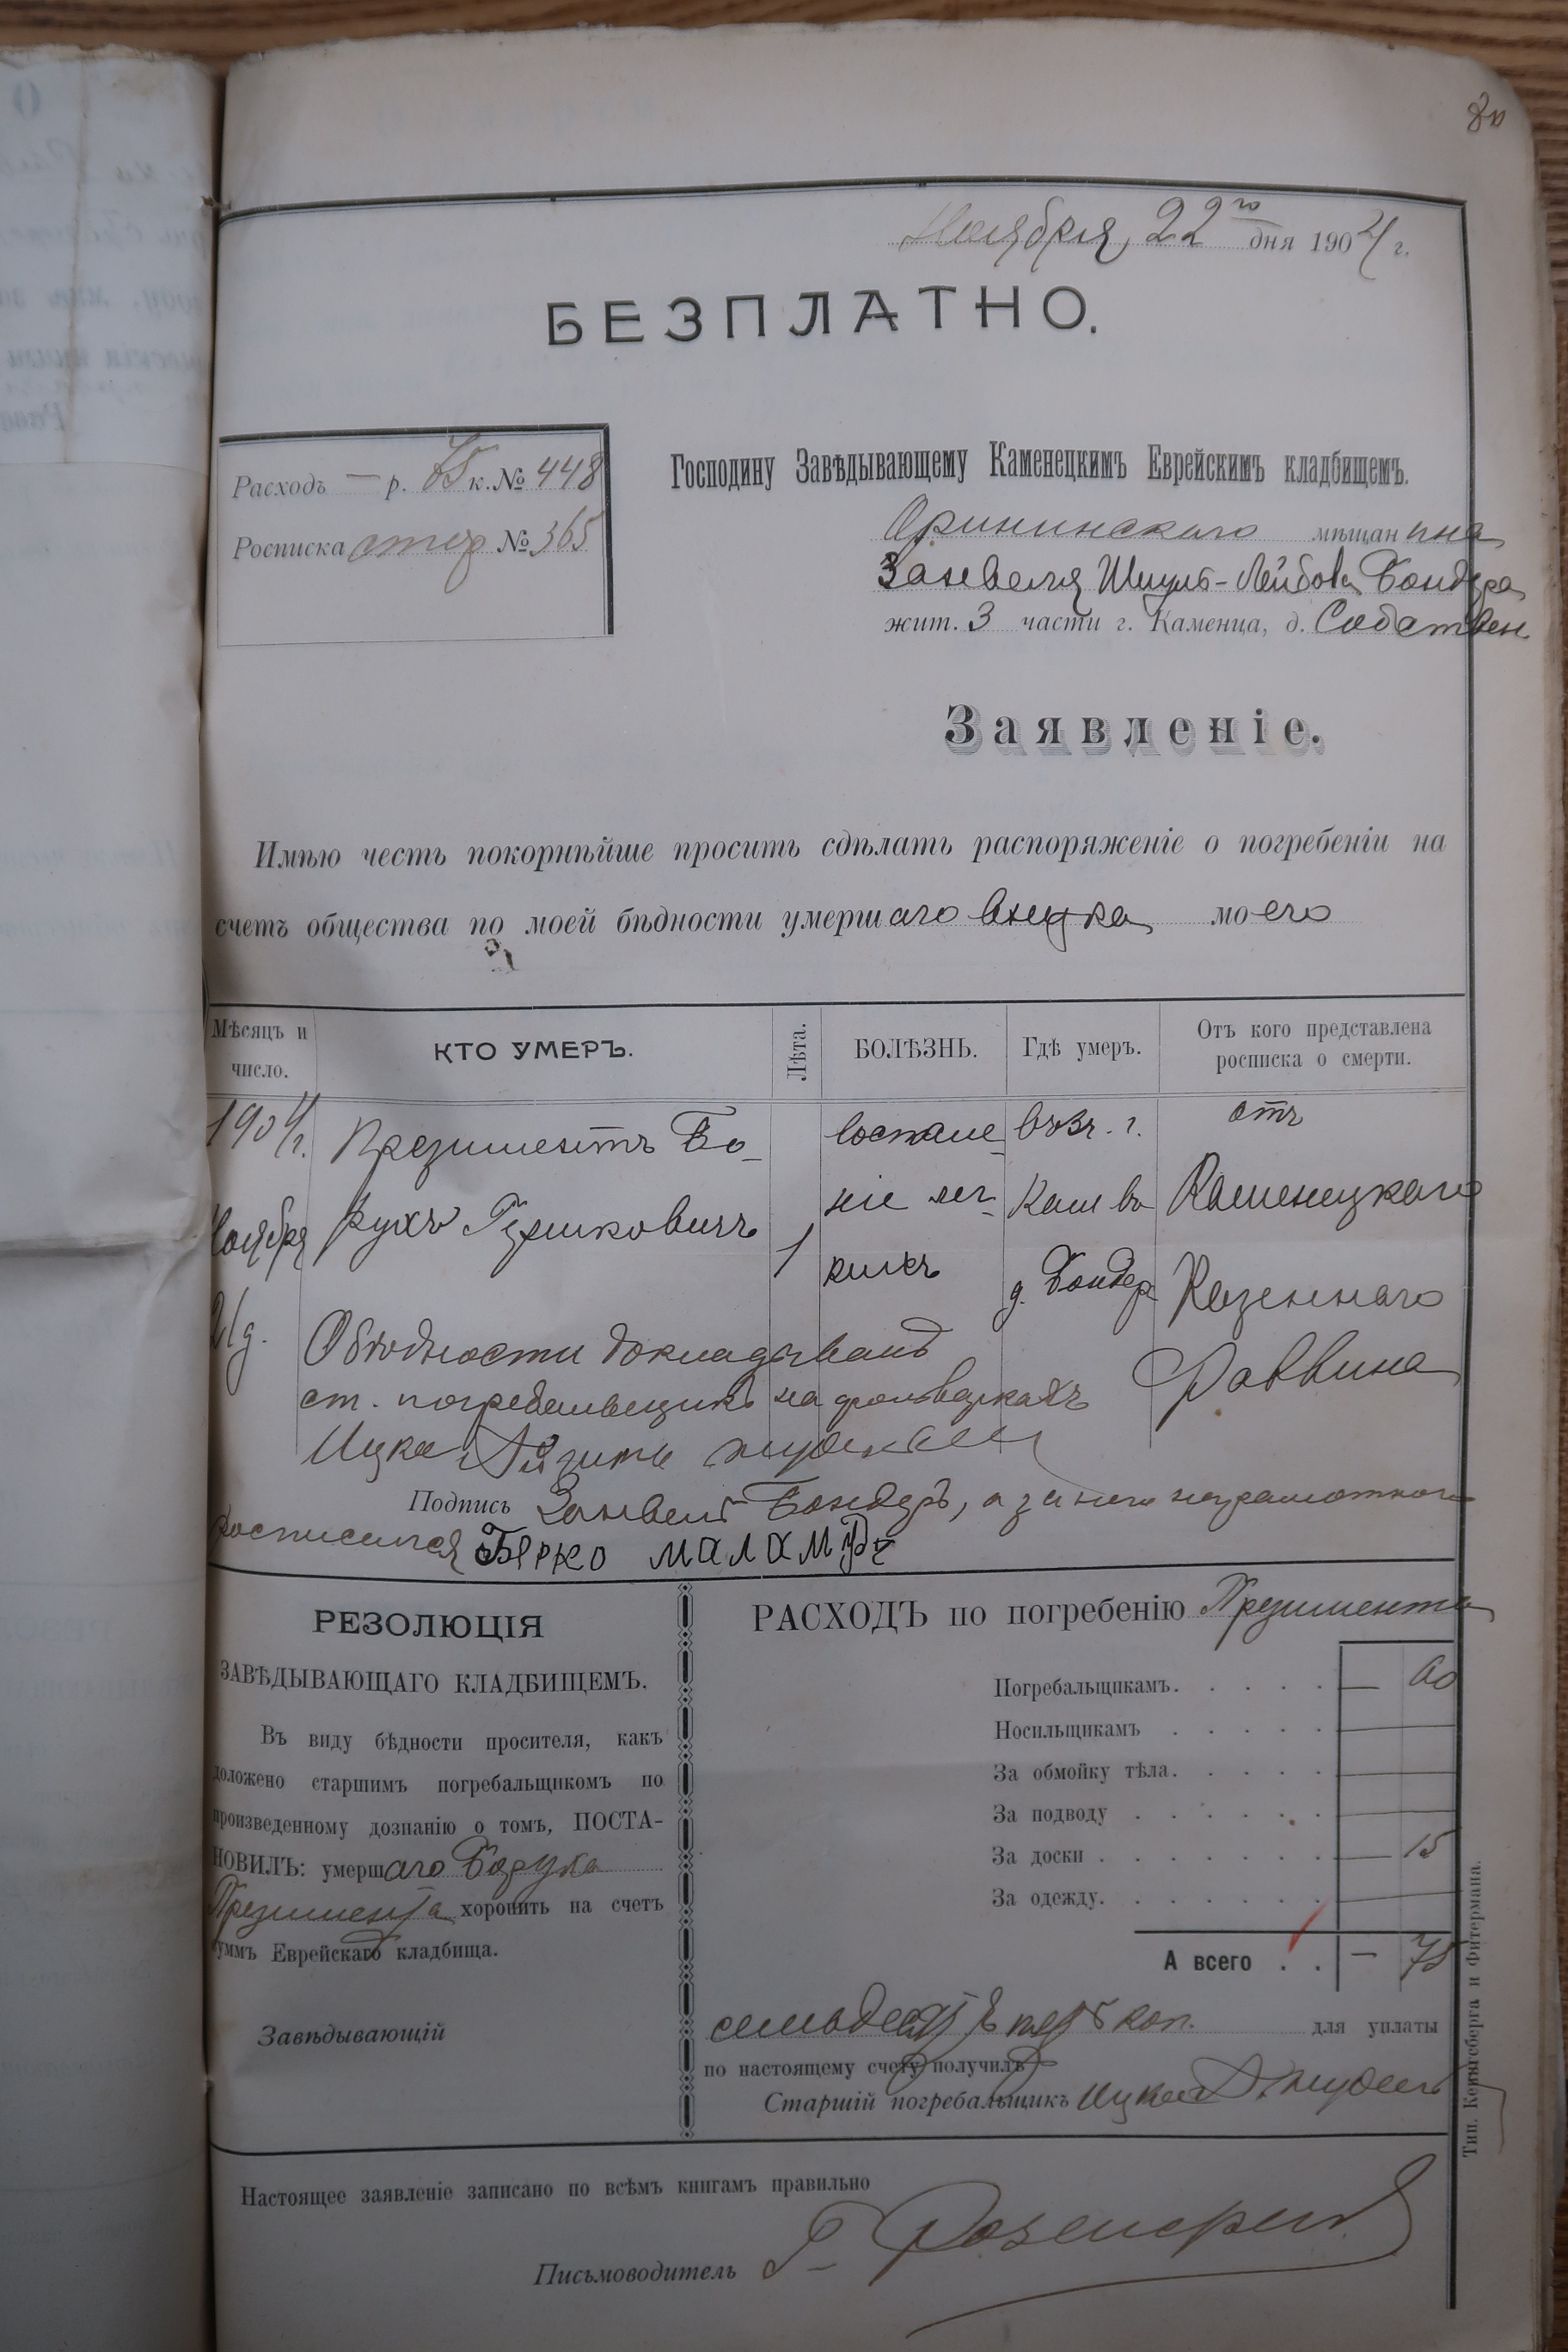 Ноября, 22го дня 1904 г.
БЕЗПЛАТНО.
Расходъ — р. 75 к. № 448
Росписка стар № 365
Господину Завѣдывающему Каменецкимъ Еврейскимъ кладбищемъ.
Орининскаго мѣщанина
Занвеля Шмуль-Лейбова Бондера
жит. 3 части г. Каменца, д. Собствен
Заявленіе.
Имѣю честь покорнѣйше просить сдѣлать распоряженіе о погребеніи на
счетъ общества по моей бѣдности умершаго внука моего
Мѣсяцъ и число.
КТО УМЕРЪ.
Лѣта.
БОЛѢЗНЬ.
Гдѣ умеръ.
Отъ кого представлена росписка о смерти.
1904 г.
Ноября
21 д.
Презиментъ Бо-
рухъ Гершковичъ
1
воспале-
ніе лег-
кихъ
въ 3 ч. г.
Кам въ
д. Бондер
отъ
Каменецкаго
Казеннаго
Раввина
О бѣдности докладывалъ
ст. погребальщикъ на фольваркахъ
Ицка
Подпись Занвель Бондеръ, а за него неграмотнаго
росписался Бѣрко маламудъ
РЕЗОЛЮЦІЯ
ЗАВѢДЫВАЮЩАГО КЛАДБИЩЕМЪ.
Въ виду бѣдности просителя, какъ
доложено старшимъ погребальщикомъ по
произведенному дознанію о томъ, ПОСТА-
НОВИЛЪ: умершаго Боруха
Презимента хоронить на счетъ
суммъ Еврейскаго кладбища.
Завѣдывающій
РАСХОДЪ по погребенію Презимента
Погребальщикамъ. . . . . — 60
Носильщикамъ . . . . .
За обмойку тѣла. . . . .
За подводу . . . . . .
За доски . . . . . . . — 15
За одежду. . . . . . .
А всего . . — 75
семьдесятъ пять коп. для уплаты
по настоящему счету получилъ
Старшій погребальщикъ Ицка
Настоящее заявленіе записано по всѣмъ книгамъ правильно
Письмоводитель
Тип. Кенигсберга и Фитермана.